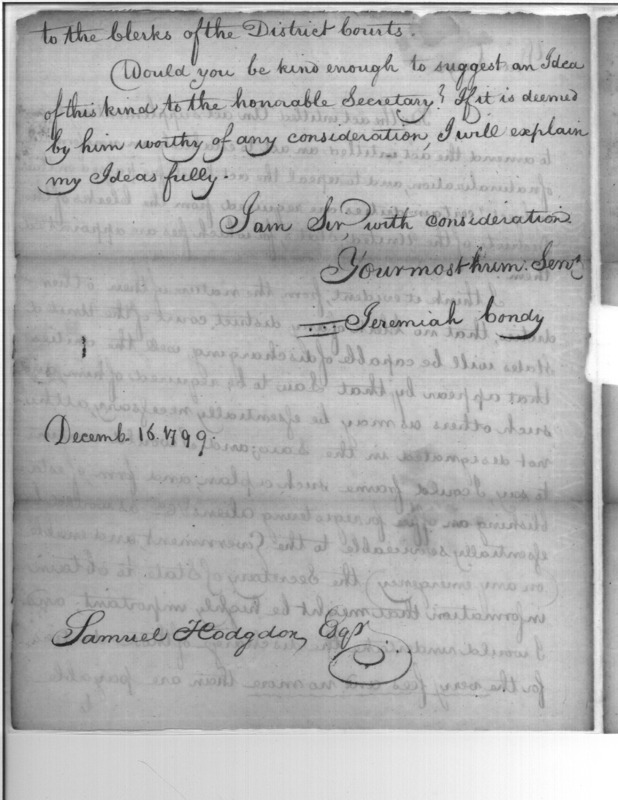 to the Clerks of the District Courts.
Would you be kind enough to suggest an Idea
of this kind to the honorable Secretary? If it is deemed
by him worthy of any consideration, I will explain
my Ideas fully.
I am Sir, with consideration
Your most hum: Servt
Jeremiah Condy
Decemb. 16. 1799.
Samuel Hodgdon, Esqr